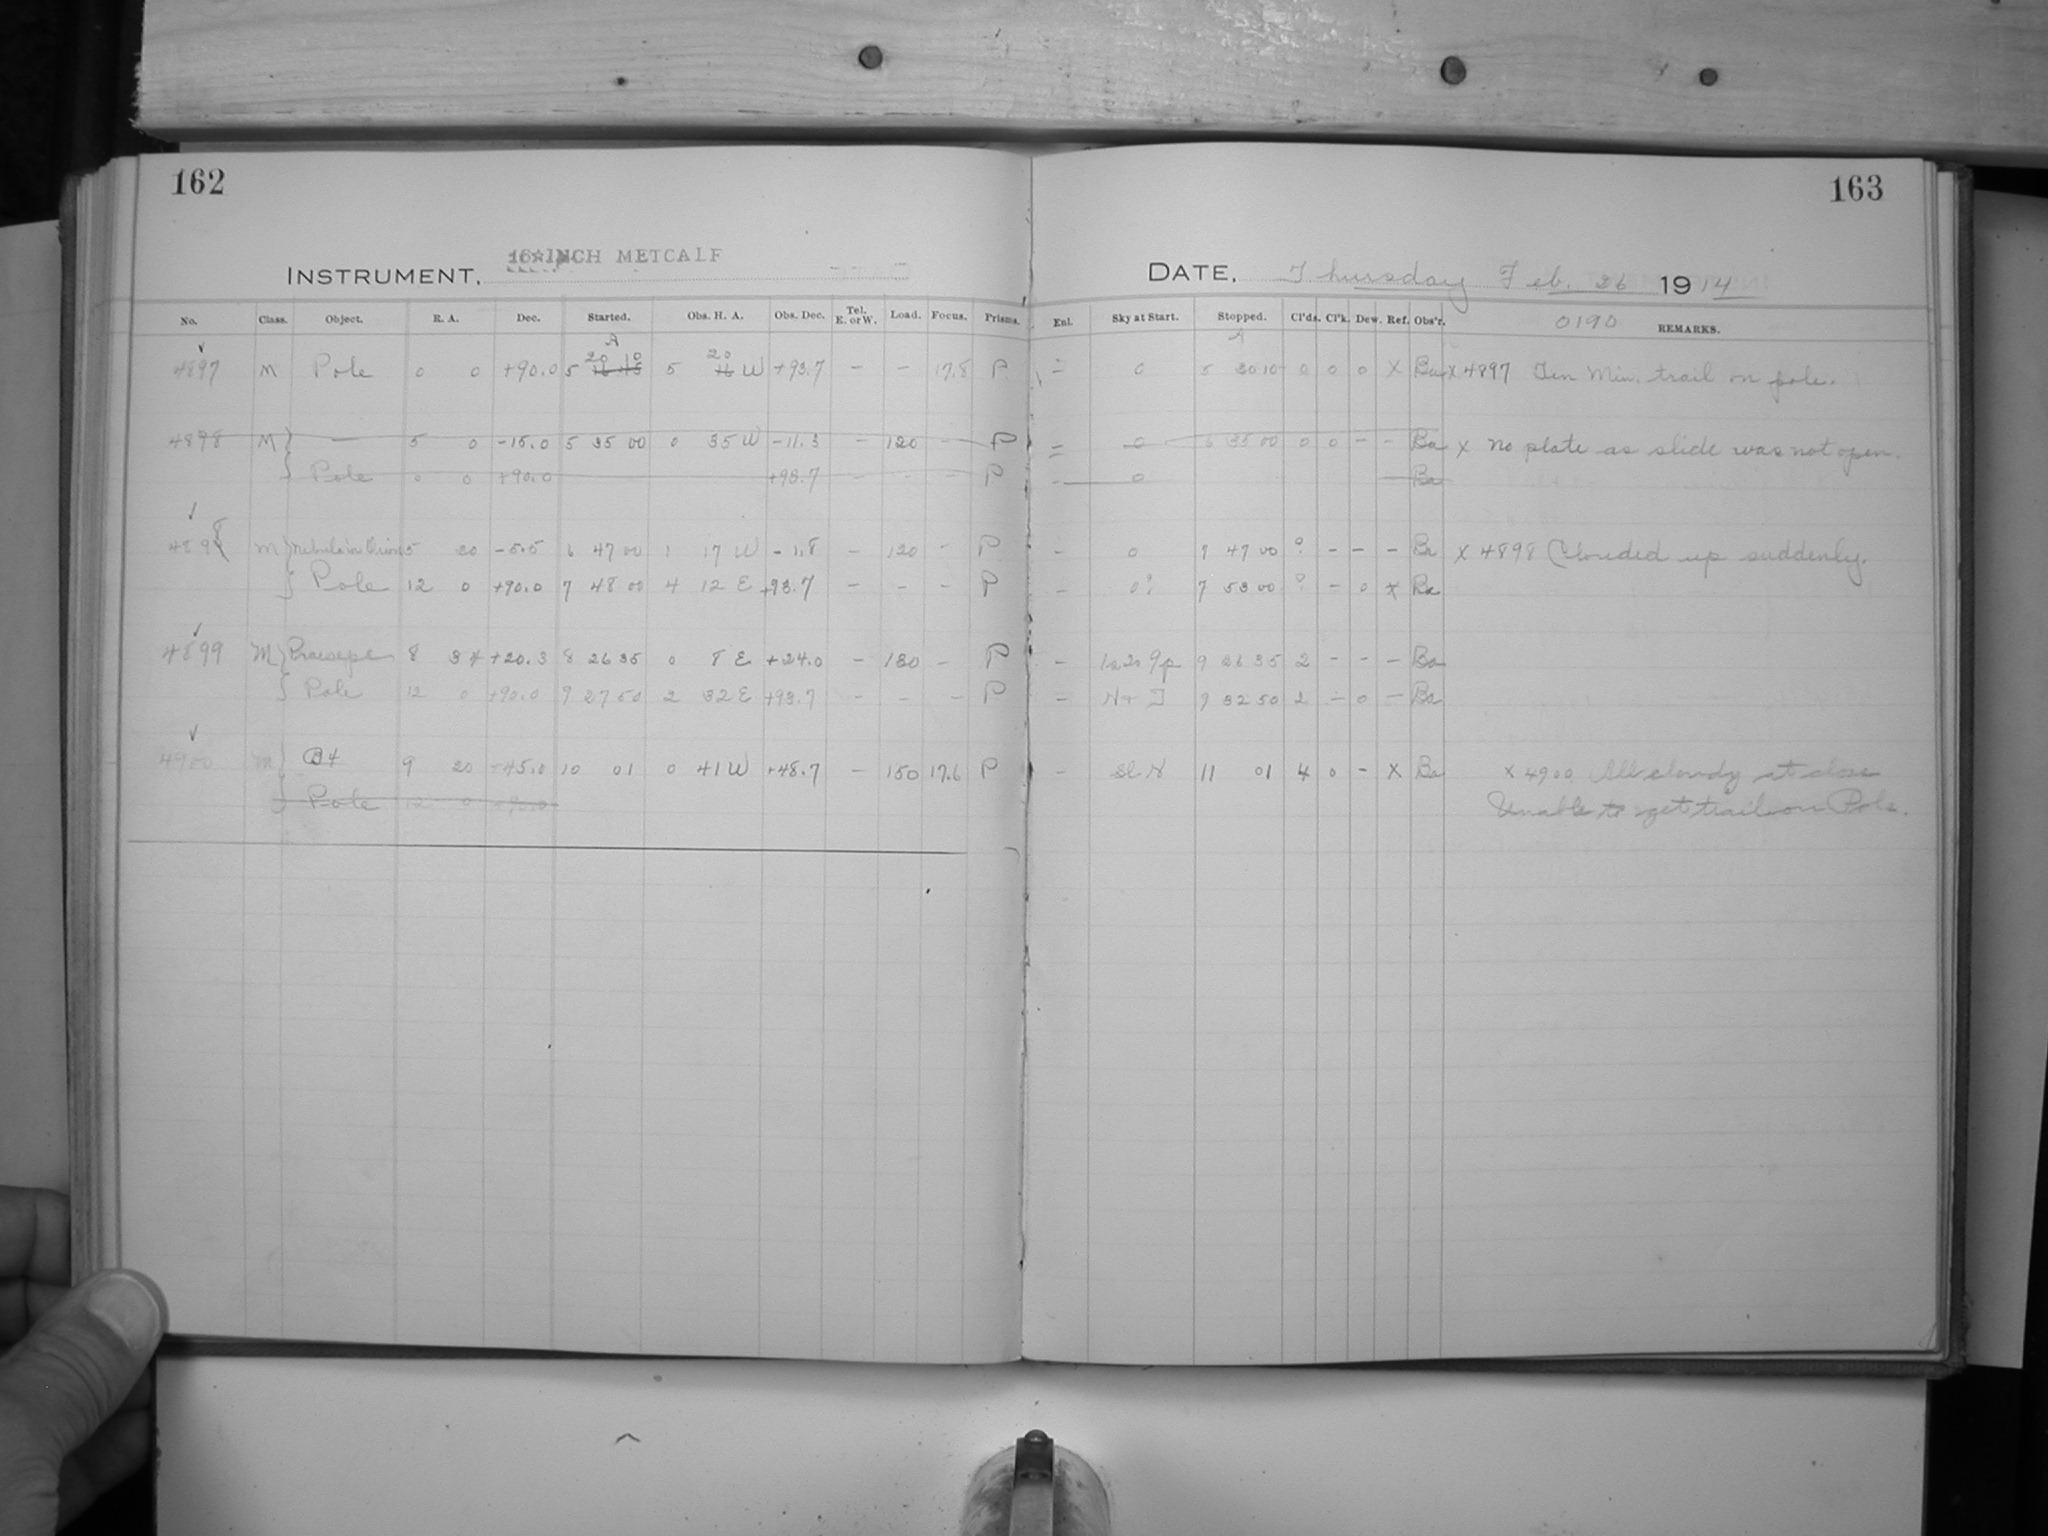 162
163
INSTRUMENT, 16 INCH METCALF
DATE, Thursday Feb. 26 1914
No. Class. Object. R. A. Dec. Started. Obs. H. A. Obs. Dec. Tel. E. or W. Load. Focus. Prisms. Enl. Sky at Start. Stopped. Cl'ds. Cl'k. Dew. Ref. Obs'r. 0190 REMARKS.
A A
20 10 20
4897 M Pole 0 0 +90.0 5 16 15 5 16 W +93.7 - - 17.8 P - 0 5 30 10 0 0 0 X Ba X 4897 Ten Min. trail on pole.
4898 M - 5 0 -15.0 5 35 00 0 35 W -11.3 - 120 - P - 0 6 35 00 0 0 - - Ba X No plate as slide was not open.
Pole 0 0 +90.0 +93.7 - - - P - 0 Ba
4898 M Nebula in Orion 5 30 -5.5 6 47 00 1 17 W -1.8 - 120 - P - 0 7 47 00 ? - - - Ba X 4898 Clouded up suddenly.
Pole 12 0 +90.0 7 48 00 4 12 E +93.7 - - - P - 0? 7 53 00 ? - 0 X Ba
4899 M Praesepe 8 34 +20.3 8 26 35 0 8 E +24.0 - 120 - P - 9 26 35 2 - - - Ba
Pole 12 0 +90.0 9 27 50 2 32 E +93.7 - - - P - H + I 9 32 50 2 - 0 - Ba
4900 M 9 20 +45.0 10 01 0 41 W +48.7 - 150 17.6 P - Sl. H 11 01 4 0 - X Ba X 4900 All cloudy at close
Pole 12 0 +90.0 Unable to get trail on Pole.